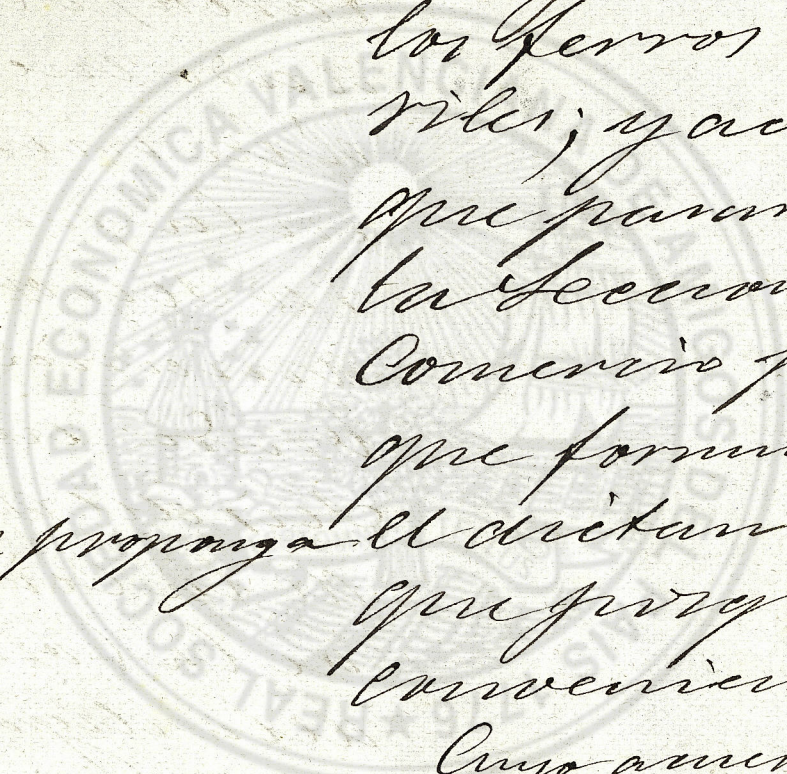 los ferros
riles; y ac
que paran
ta Seccion
Comercio p
que formu
proponga el dictam
que juzg
convenien
Cuyo acuer
REAL SOCIEDAD ECONOMICA VALENCIANA DE AMIGOS DEL PAIS 1776